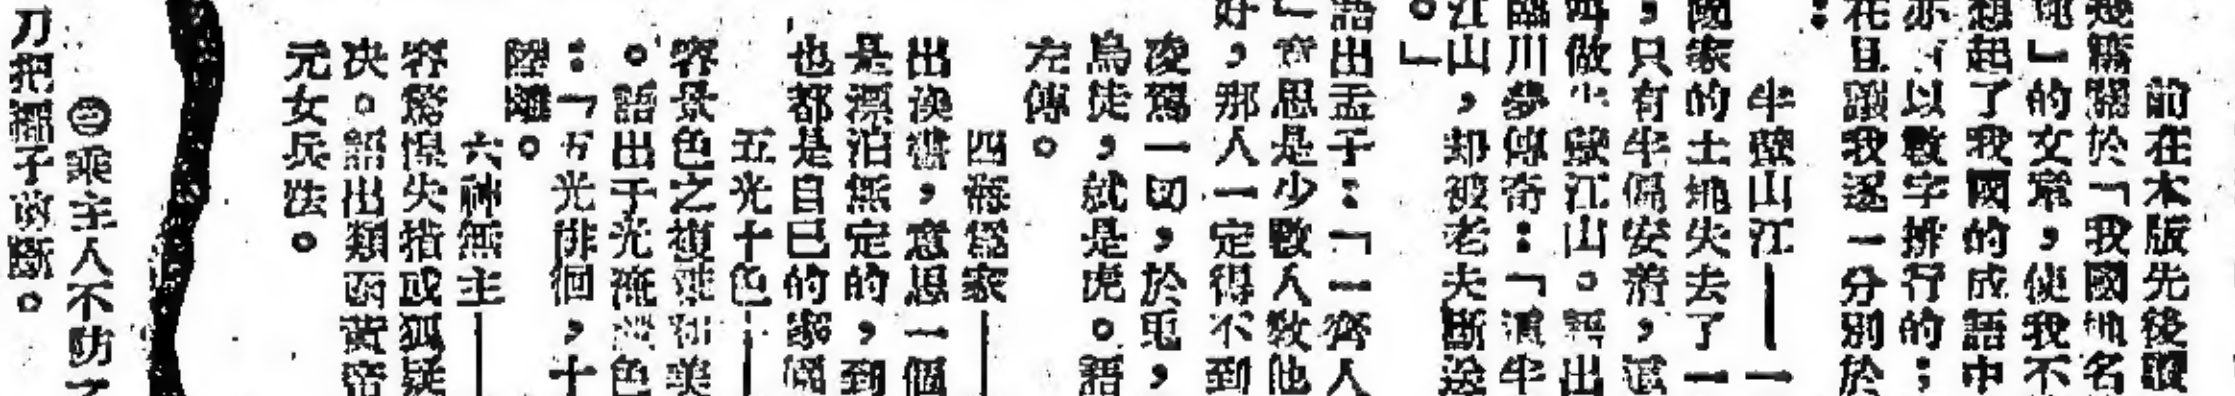 前在本版先後讀
幾篇關於「我國地名
」的文章，使我不
想起了我國的成語中
亦有以數字排行的；
在且讓我逐一分別於
：
半壁山江——一
國家的土地失去了一
，只有半偏安着，這
叫做半壁江山。語出
臨川夢傳奇：「這半
江山，却被老夫斷送
。」
語出孟子：「一齊人
」意思是少數人教他
好，那人一定得不到
凌駕一切，於菟，
烏徒，就是虎。語
左傳。
四海爲家——
出漢書，意思一個
是漂泊無定的，到
也都是自已的家鄉
五光十色——
容景色之複雜和美
。語出于光淹 色
：「五光徘徊，十
陸離。
六神無主——
容驚惶失措或狐疑
决。語出類函黃帝
元女兵法。
㊁乘主人不防
刀把繩子剪斷。